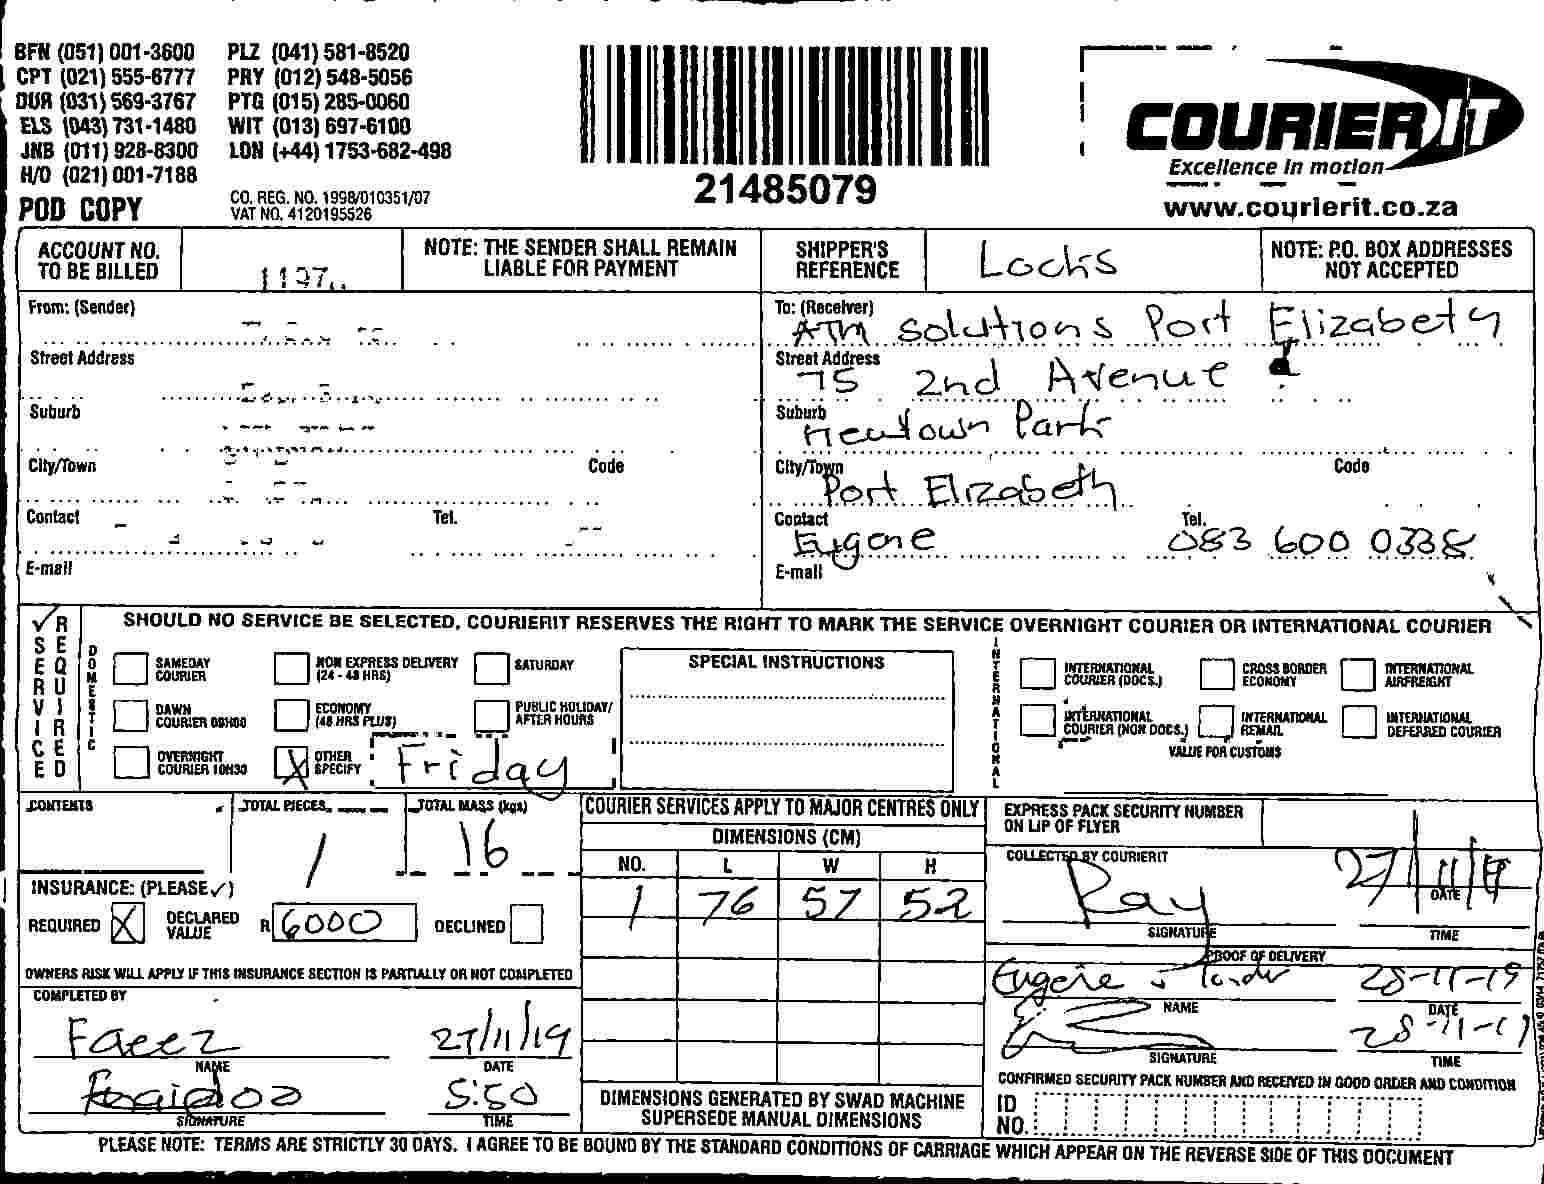 BFN (051) 001-3600 PLZ (041) 581-8520
CPT (021) 555-6777 PRY (012) 548-5056
DUR (031) 569-3767 PTG (015) 285-0060
ELS (043) 731-1480 WIT (013) 697-6100
JNB (011) 928-8300 LON (+44) 1753-682-498
H/O (021) 001-7188
POD COPY
CO. REG. NO. 1998/010351/07
VAT NO. 4120195526
21485079
COURIERIT
Excellence in motion
www.courierit.co.za
ACCOUNT NO. TO BE BILLED
NOTE: THE SENDER SHALL REMAIN LIABLE FOR PAYMENT
SHIPPER'S REFERENCE Locks
NOTE: P.O. BOX ADDRESSES NOT ACCEPTED
From: (Sender)
Street Address
Suburb
City/Town Code
Contact Tel.
E-mail
To: (Receiver) ATM Solutions Port Elizabeth
Street Address 75 2nd Avenue
Suburb Newtown Park
City/Town Port Elizabeth Code
Contact Eugene Tel. 083 600 0338
E-mail
SERVICE REQUIRED
SHOULD NO SERVICE BE SELECTED, COURIERIT RESERVES THE RIGHT TO MARK THE SERVICE OVERNIGHT COURIER OR INTERNATIONAL COURIER
DOMESTIC
SAMEDAY COURIER
NON EXPRESS DELIVERY (24 - 48 HRS)
SATURDAY
DAWN COURIER 09H00
ECONOMY (48 HRS PLUS)
PUBLIC HOLIDAY/ AFTER HOURS
OVERNIGHT COURIER 10H30
X OTHER SPECIFY Friday
SPECIAL INSTRUCTIONS
INTERNATIONAL
INTERNATIONAL COURIER (DOCS.)
CROSS BORDER ECONOMY
INTERNATIONAL AIRFREIGHT
INTERNATIONAL COURIER (NON DOCS.)
INTERNATIONAL REMAIL
INTERNATIONAL DEFERRED COURIER
VALUE FOR CUSTOMS
CONTENTS
TOTAL PIECES 1
TOTAL MASS (kgs) 16
INSURANCE: (PLEASE ✓)
REQUIRED X DECLARED VALUE R 6000 DECLINED
OWNERS RISK WILL APPLY IF THIS INSURANCE SECTION IS PARTIALLY OR NOT COMPLETED
COMPLETED BY
Faeez 27/11/19
NAME DATE
5:50
SIGNATURE TIME
COURIER SERVICES APPLY TO MAJOR CENTRES ONLY
DIMENSIONS (CM)
NO. L W H
1 76 57 52
DIMENSIONS GENERATED BY SWAD MACHINE SUPERSEDE MANUAL DIMENSIONS
EXPRESS PACK SECURITY NUMBER ON LIP OF FLYER
COLLECTED BY COURIERIT
Ray 27/11/19
DATE
SIGNATURE TIME
PROOF OF DELIVERY
Eugene 28-11-19
NAME DATE
28-11-19
SIGNATURE TIME
CONFIRMED SECURITY PACK NUMBER AND RECEIVED IN GOOD ORDER AND CONDITION
ID NO.
PLEASE NOTE: TERMS ARE STRICTLY 30 DAYS. I AGREE TO BE BOUND BY THE STANDARD CONDITIONS OF CARRIAGE WHICH APPEAR ON THE REVERSE SIDE OF THIS DOCUMENT